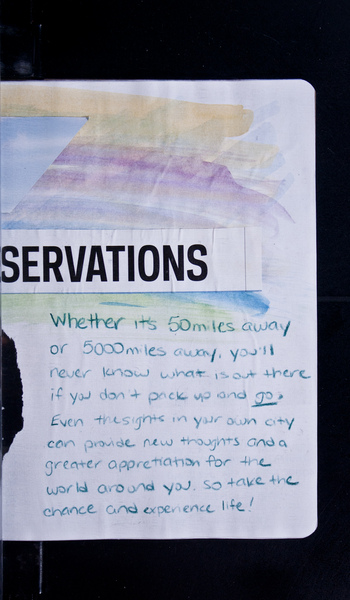 SERVATIONS
Whether its 50miles away
or 5000miles away, you'll
never know what is out there
if you don't pack up and go.
Even the sights in your own city
can provide new thoughts and a
greater appretiation for the
world around you. So take the
chance and experience life!